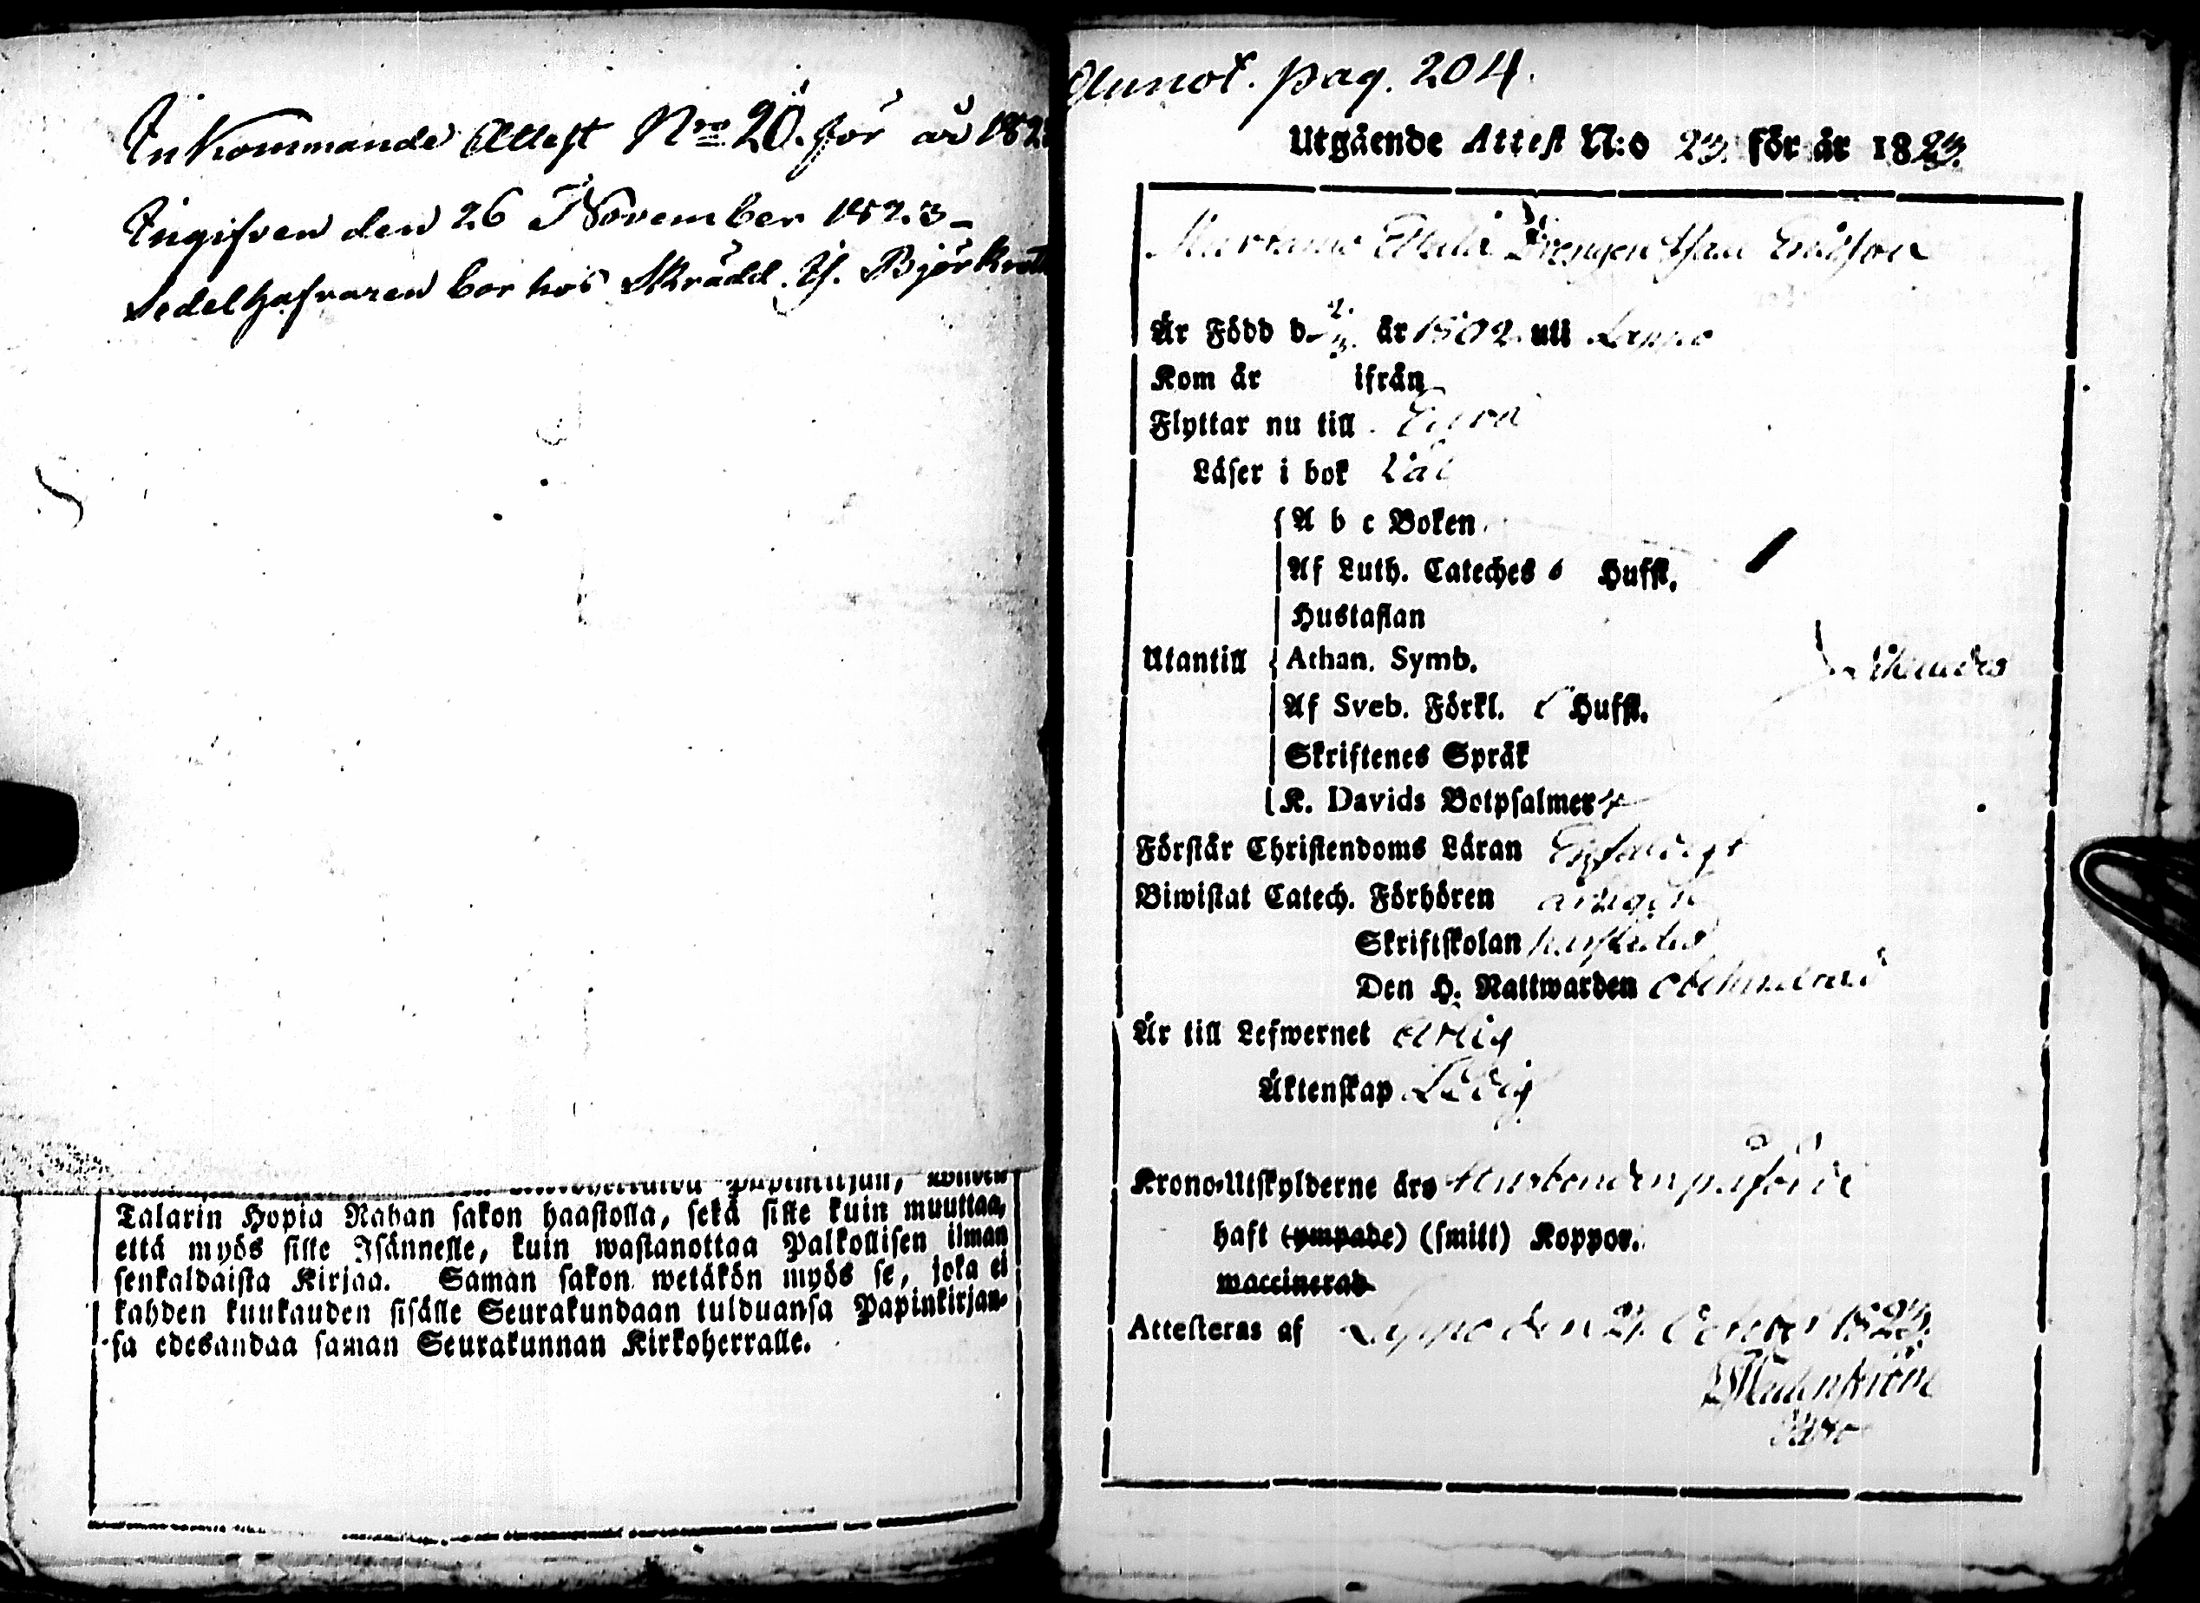 Inkommande Attest Nro 20. för år 182
Ingifven den 26 November 1823
Sedelhafvaren bor hos Skrädd. Björkro
Talarin Hopia Rahan sakon haastolla, sekä sille kuin muuttaa,
että myös sille Isännelle, kuin wastanottaa Palkollisen ilman
senkaldaista Kirjaa. Saman sakon wetäkön myös se, joka ei
kahden kuukauden sisälle Seurakundaan tulduansa Papinkirjan-
sa edesandaa saman Seurakunnan Kirkoherralle.
Annot. pag. 204.
Utgående Attest N:o 23. för år 1823.
Drengen Ericsson
Är Född d. år 1802 uti Lappo
Kom år ifrån
Flyttar nu till
Läser i bok
A b c Boken
Af Luth. Cateches 6 Hufst.
Hustaflan
Utantill Athan. Symb.
Af Sveb. Förkl. Hufst.
Skriftenes Språk
K. Davids Botpsalmer
Förstår Christendoms Läran Enfaldigt
Biwistat Catech. Förhören årligen
Skriftskolan
Den H. Nattwarden
Är till Lefwernet ärlig
Äktenskap Ledig
Krono-Utskylderne äro Husbonden påförde
haft (ympade) (smitt) Koppor.
waccinerad
Attesteras af Lappo den October 1823.